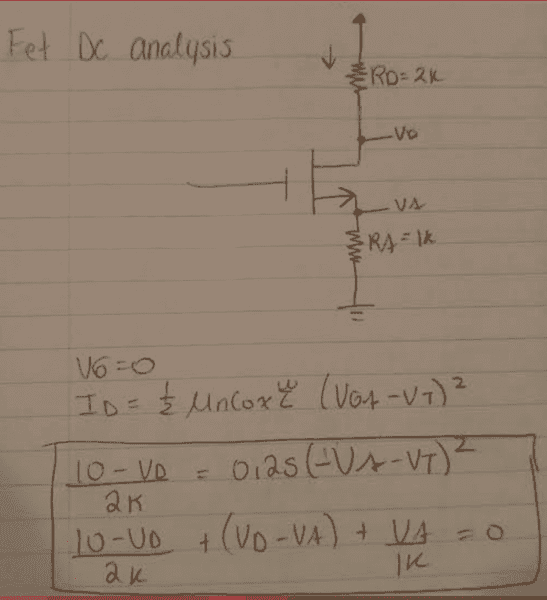 Fet Dc analysis
RD=2K
VD
VA
RA=1K
VG=0
ID = 1/2 UnCox W/L (VGA-VT)²
10-VD/2K = 0,25(-VA-VT)²
10-VD/2K + (VD-VA) + VA/1K = 0